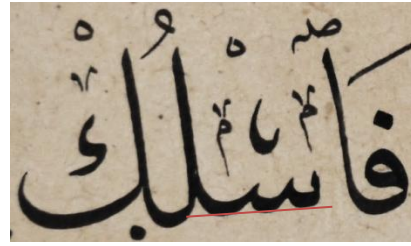 فَٱسْلُكْ